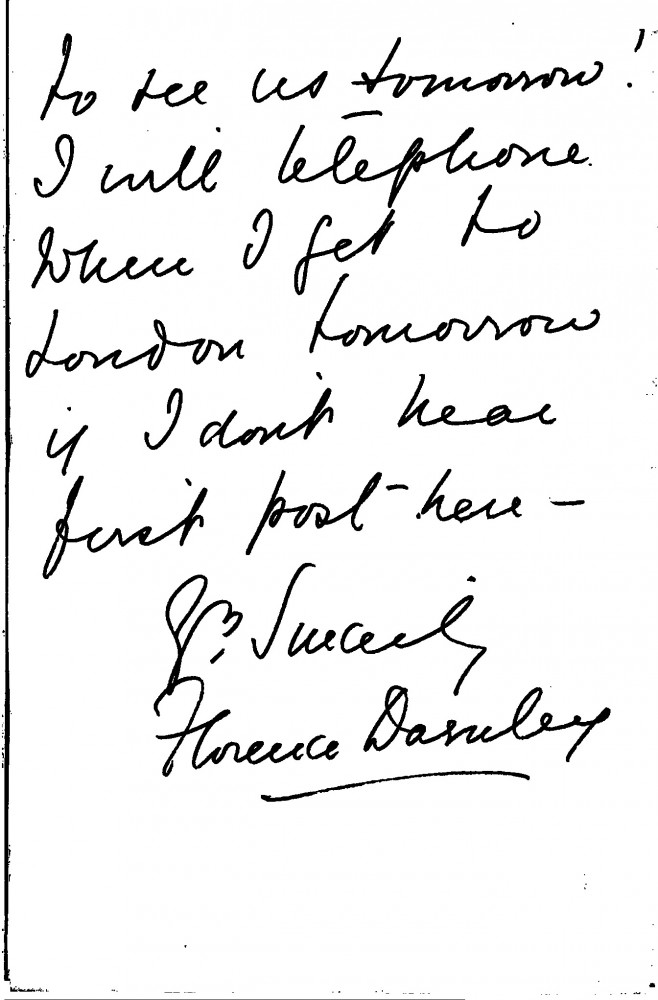 to see us tomorrow!
I will telephone
when I get to
London tomorrow
if I don't hear
first post - here -
Yrs Sincerely
Florence Darnley